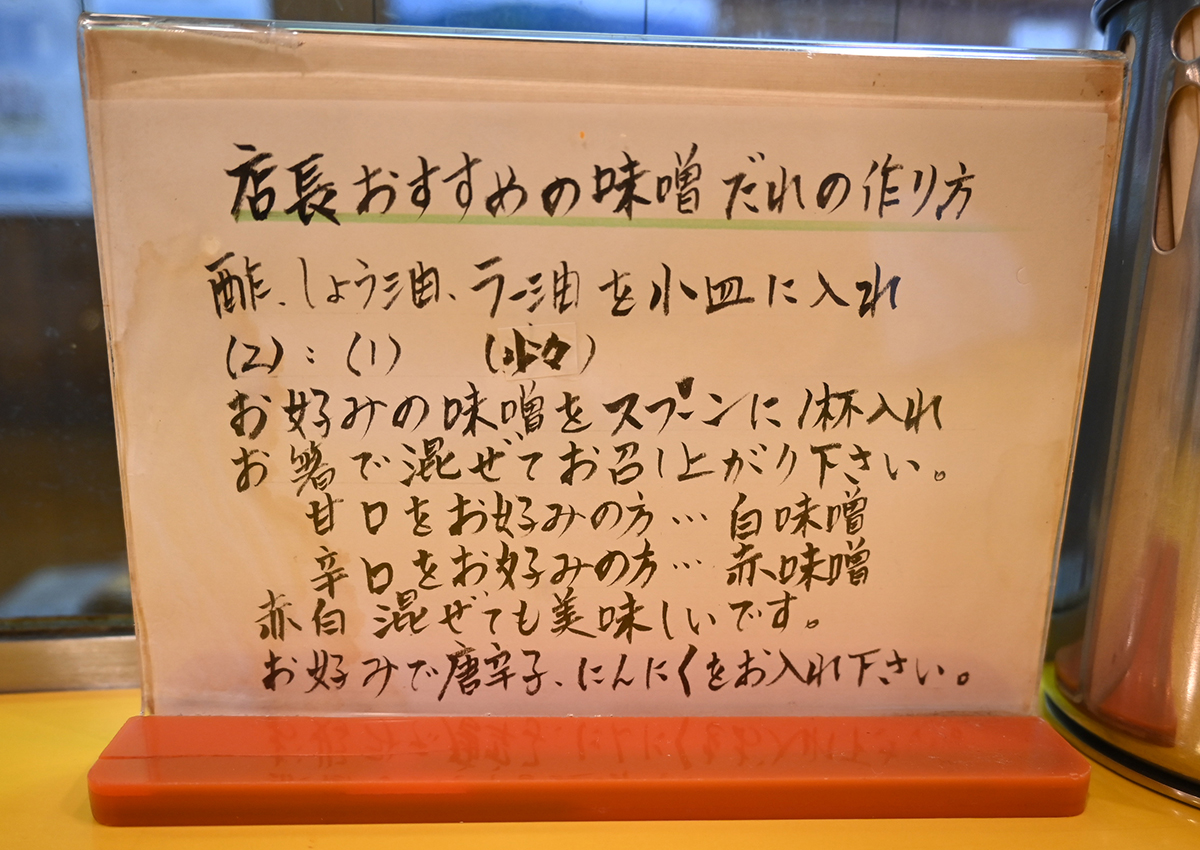 店長おすすめの味噌だれの作り方
酢、しょう油、ラー油を小皿に入れ
(2):(1) (少々)
お好みの味噌をスプーンに1杯入れ
お箸で混ぜてお召し上がり下さい。
甘口をお好みの方…白味噌
辛口をお好みの方…赤味噌
赤白混ぜても美味しいです。
お好みで唐辛子、にんにくをお入れ下さい。